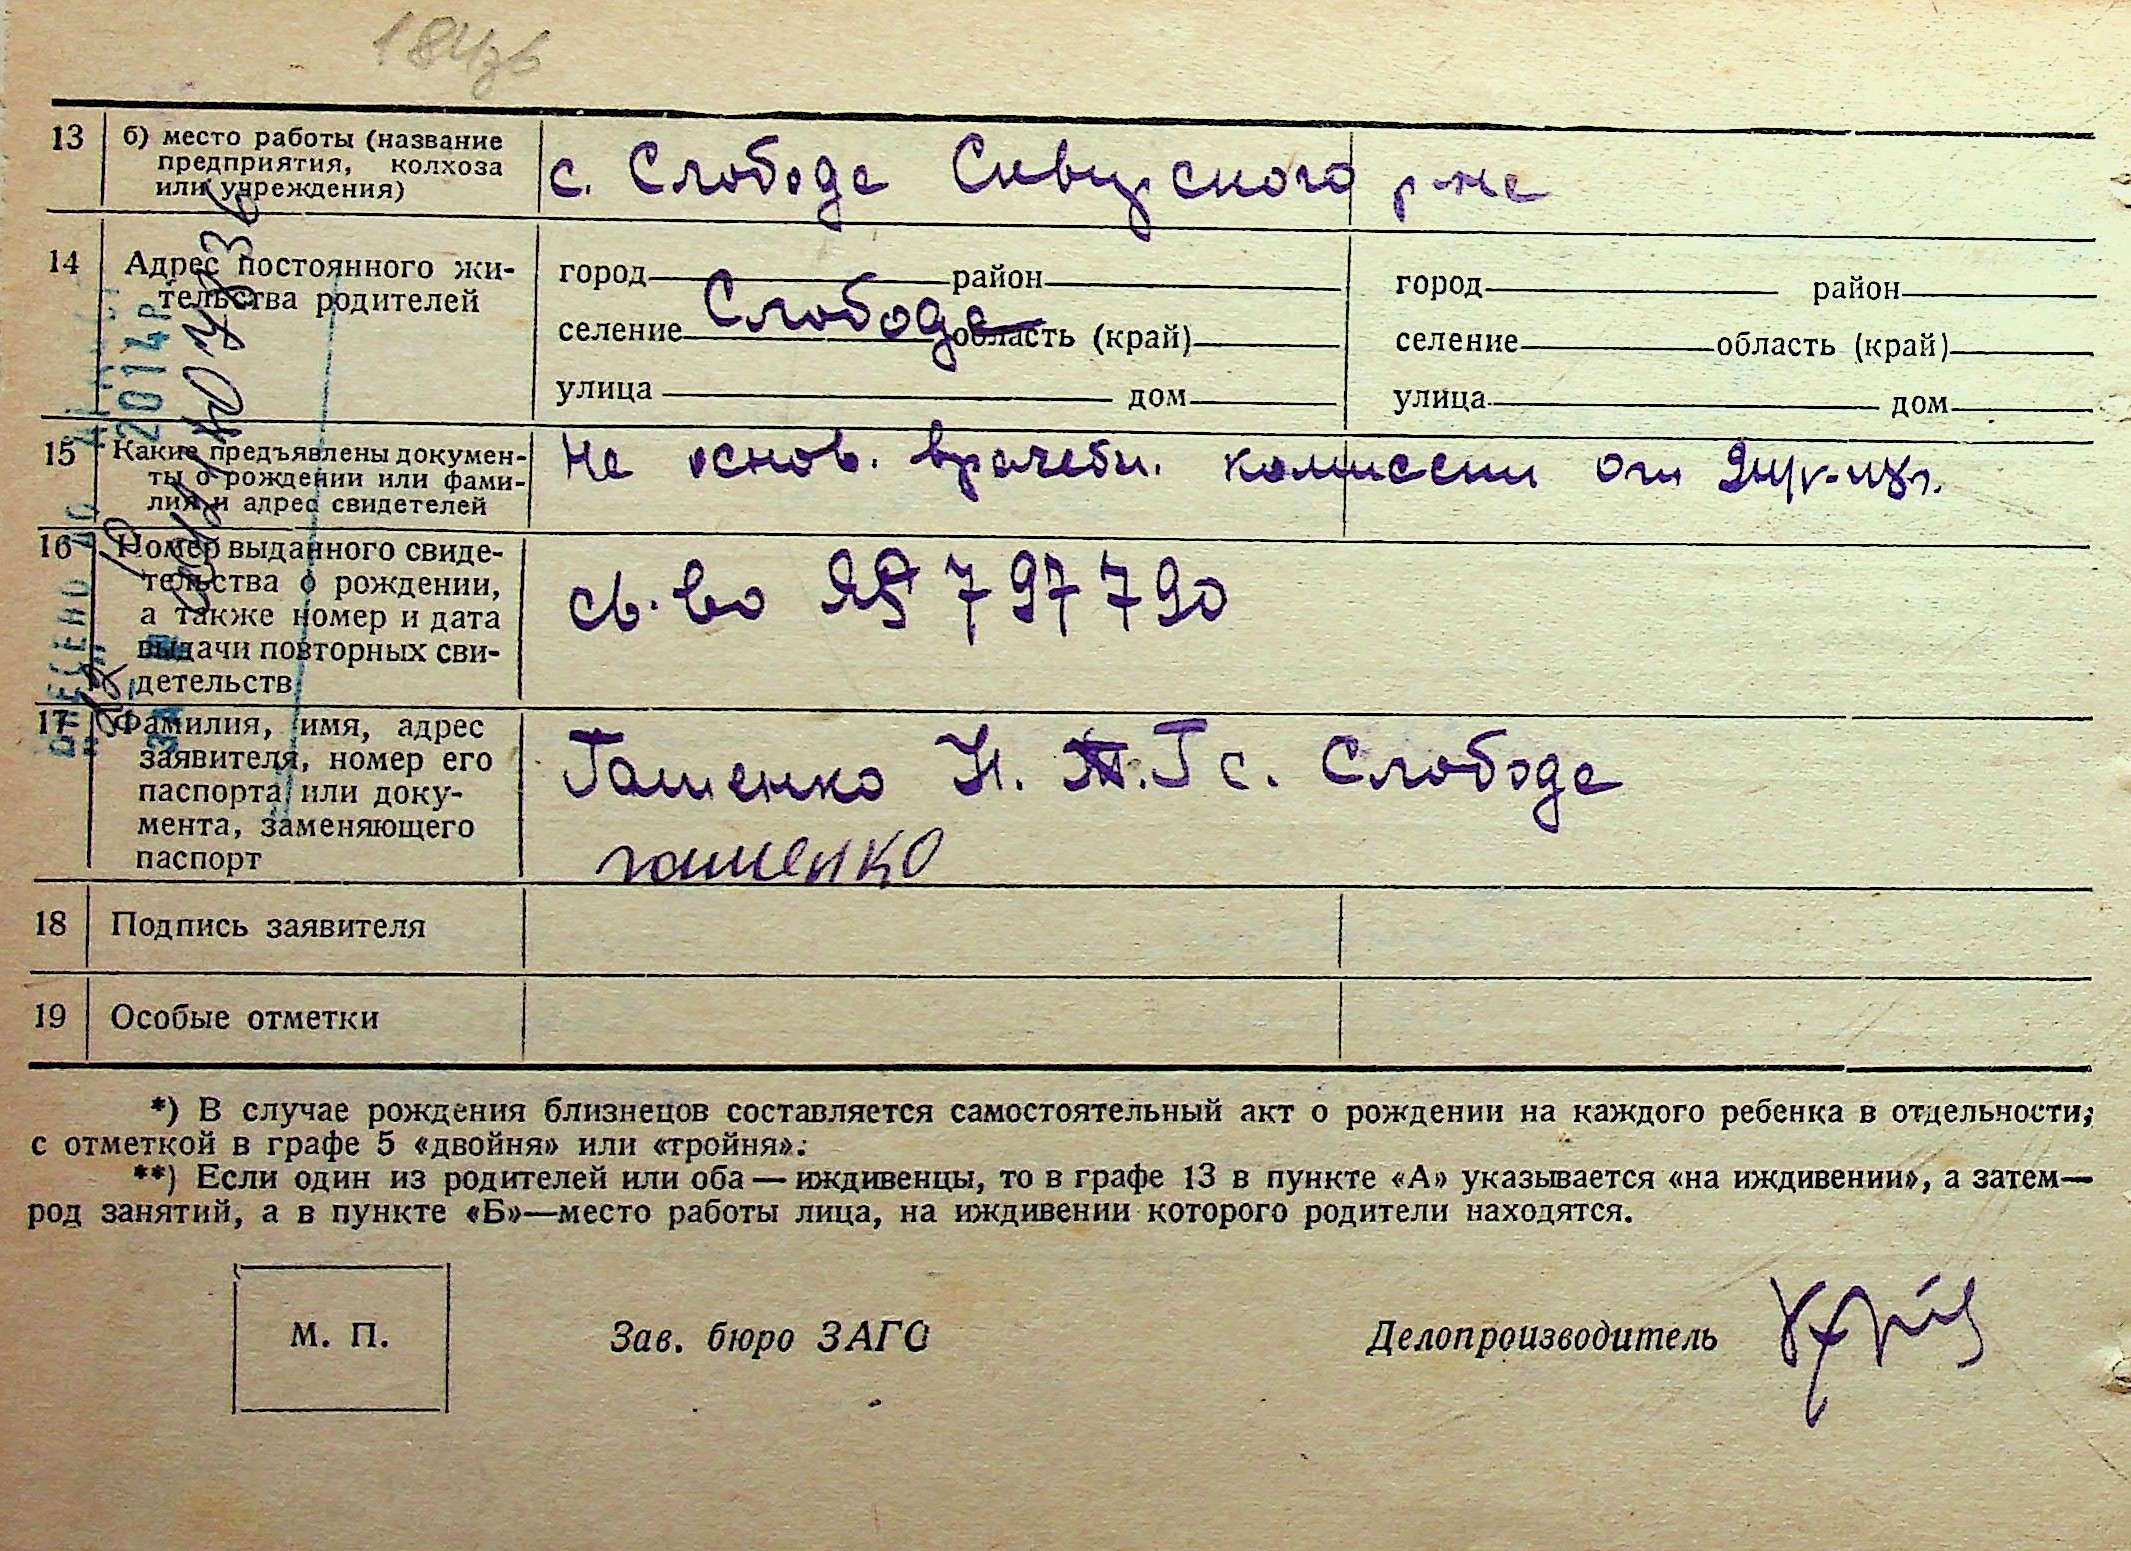 13 б) место работы (название
предприятия, колхоза
или учреждения)
с. Слобода Сквирского р-на
14 Адрес постоянного жи-
тельства родителей
город район город район
селение Слобода область (край) селение область (край)
улица дом улица дом
15 Какие предъявлены докумен-
ты о рождении или фами-
лия и адрес свидетелей
На основ. врачебн. комиссии от
16 Номер выданного свиде-
тельства о рождении,
а также номер и дата
выдачи повторных сви-
детельств
св-во 797790
17 Фамилия, имя, адрес
заявителя, номер его
паспорта или доку-
мента, заменяющего
паспорт
Гашенко Н. Г с. Слобода
гашенко
18 Подпись заявителя
19 Особые отметки
*) В случае рождения близнецов составляется самостоятельный акт о рождении на каждого ребенка в отдельности,
с отметкой в графе 5 «двойня» или «тройня».
**) Если один из родителей или оба — иждивенцы, то в графе 13 в пункте «А» указывается «на иждивении», а затем—
род занятий, а в пункте «Б»—место работы лица, на иждивении которого родители находятся.
М. П. Зав. бюро ЗАГС Делопроизводитель